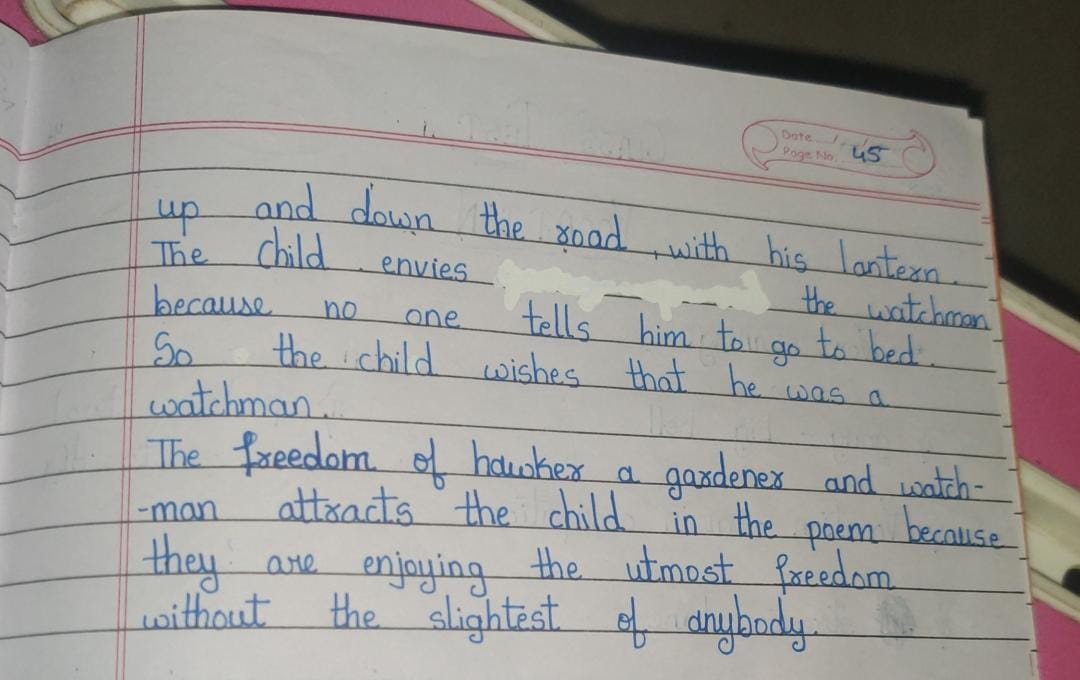 Date / /
Page No. 45
up and down the road, with his lantern.
The child envies the watchman
because no one tells him to go to bed.
So the child wishes that he was a
watchman.
The freedom of hawker a gardener and watch-
-man attracts the child in the poem because
they are enjoying the utmost freedom
without the slightest of anybody.